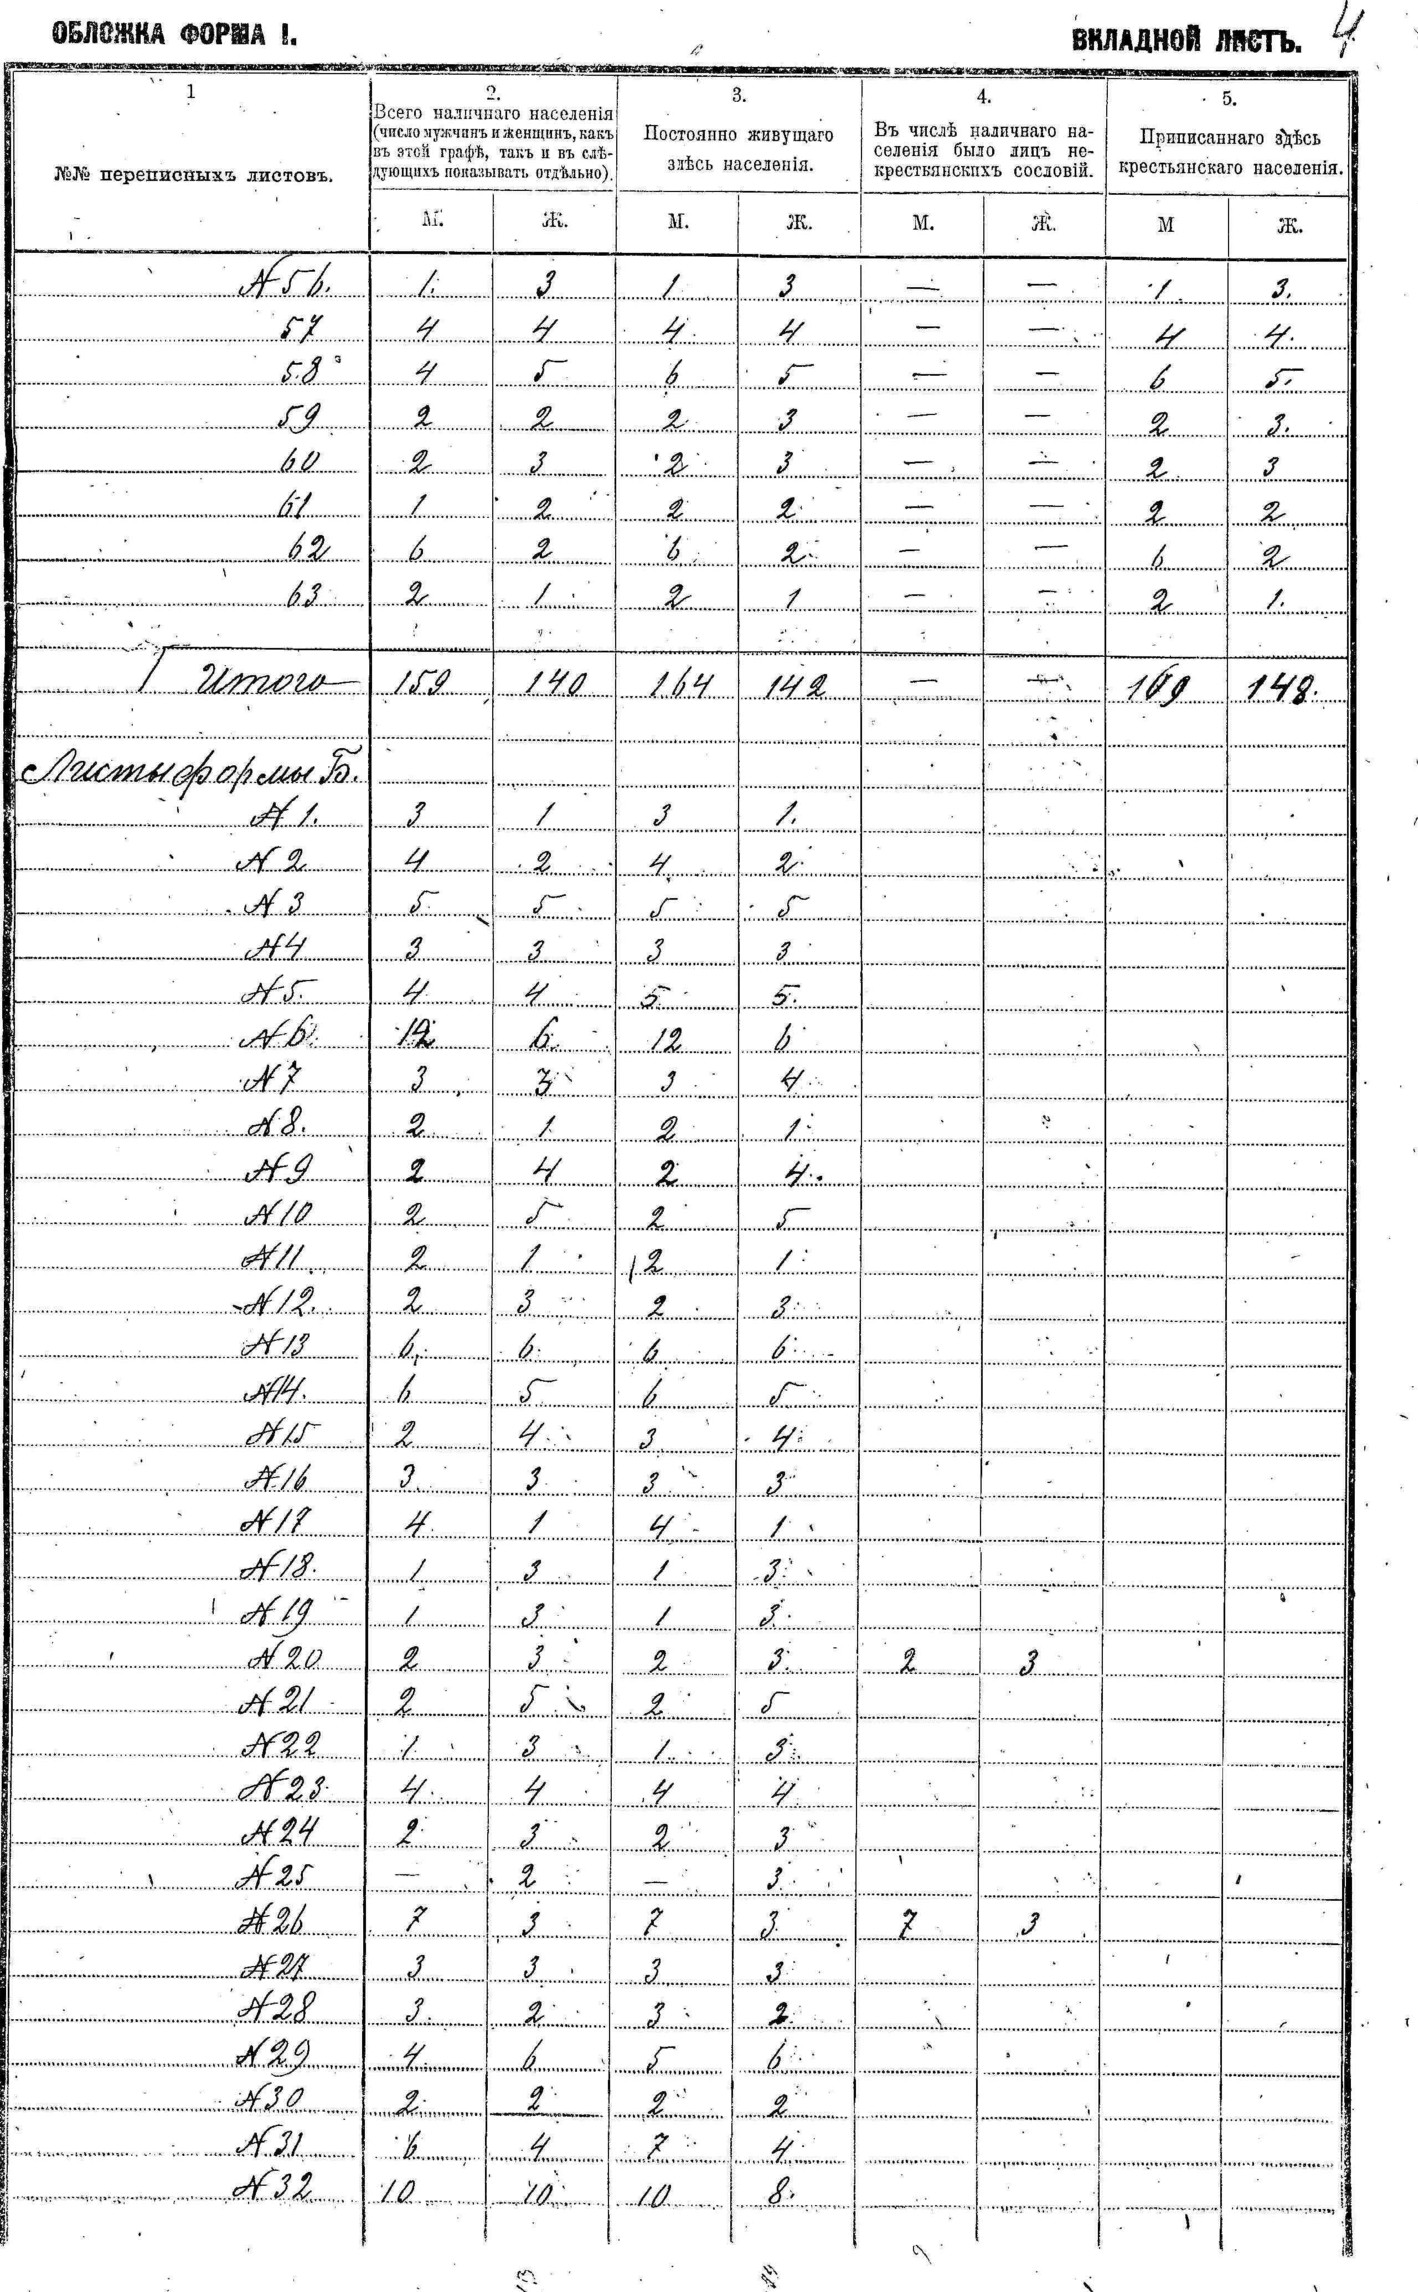 ОБЛОЖКА ФОРМА I. ВКЛАДНОЙ ЛИСТЪ. 4
1 2. 3. 4. 5.
№№ переписныхъ листовъ.
Всего наличнаго населенія
(число мужчинъ и женщинъ, какъ
въ этой графѣ, такъ и въ слѣ-
дующихъ показывать отдѣльно).
Постоянно живущаго
здѣсь населенія.
Въ числѣ наличнаго на-
селенія было лицъ не-
крестьянскихъ сословій.
Приписаннаго здѣсь
крестьянскаго населенія.
М. Ж. М. Ж. М. Ж. М Ж.
№ 56. 1. 3 1 3 — — 1 3.
57 4 4 4 4 — — 4 4.
58 4 5 6 5 — — 6 5.
59 2 2 2 3 — — 2 3.
60 2 3 2 3 — — 2 3
61 1 2 2 2 — — 2 2
62 6 2 6 2 — — 6 2
63 2 1 2 1 — — 2 1.
Итого 159 140 164 142 — — 169 148.
Листы формы Б.
№ 1. 3 1 3 1.
№ 2 4 2 4 2
№ 3 5 5 5 5
№ 4 3 3 3 3
№ 5. 4 4 5 5.
№ 6 12 6 12 6
№ 7 3 3 3 4
№ 8. 2 1 2 1
№ 9 2 4 2 4.
№ 10 2 5 2 5
№ 11 2 1 2 1
№ 12. 2 3 2 3
№ 13 6 6 6 6
№ 14. 6 5 6 5
№ 15 2 4 3 4
№ 16 3 3 3 3
№ 17 4 1 4 1
№ 18. 1 3 1 3
№ 19 1 3 1 3
№ 20 2 3 2 3 2 3
№ 21 2 5 2 5
№ 22 1 3 1 3
№ 23 4 4 4 4
№ 24 2 3 2 3
№ 25 — 2 — 3
№ 26 7 3 7 3 7 3
№ 27 3 3 3 3
№ 28 3 2 3 2
№ 29 4 6 5 6
№ 30 2 2 2 2
№ 31 6 4 7 4
№ 32 10 10 10 8